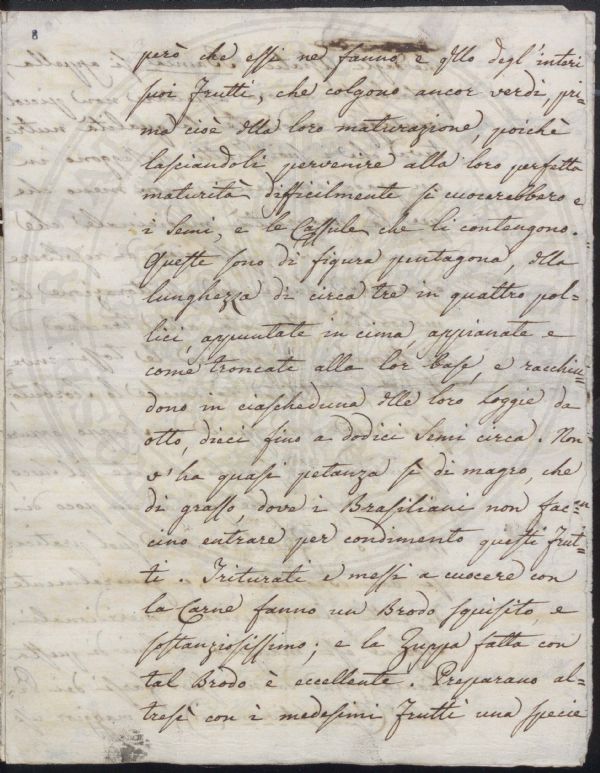 8
però che essi ne fanno, e qllo degl'interi
suoi frutti, che colgono ancor verdi, pri=
ma cioè dlla loro maturazione, poichè
lasciandoli pervenire alla loro perfetta
maturità difficilmente si cuocerebbero e
i semi, e le Cassule che li contengono.
Queste sono di figura pentagona, dlla
lunghezza di circa tre in quattro pol=
lici, appuntate in cima, appianate e
come troncate alla lor base, e racchiu=
dono in ciascheduna dlle loro loggie da
otto, dieci fino a dodici semi circa. Non
v'ha quasi petanza sì di magro, che
di grasso dove i Brasiliani non fac=
cino entrare per condimento questi frut=
ti. Triturati e messi a cuocere con
la Carne fanno un Brodo squisito e
sostanziosissimo; e la Zuppa fatta con
tal Brodo è eccellente. Preparano al=
tresì con i medesimi frutti una specie